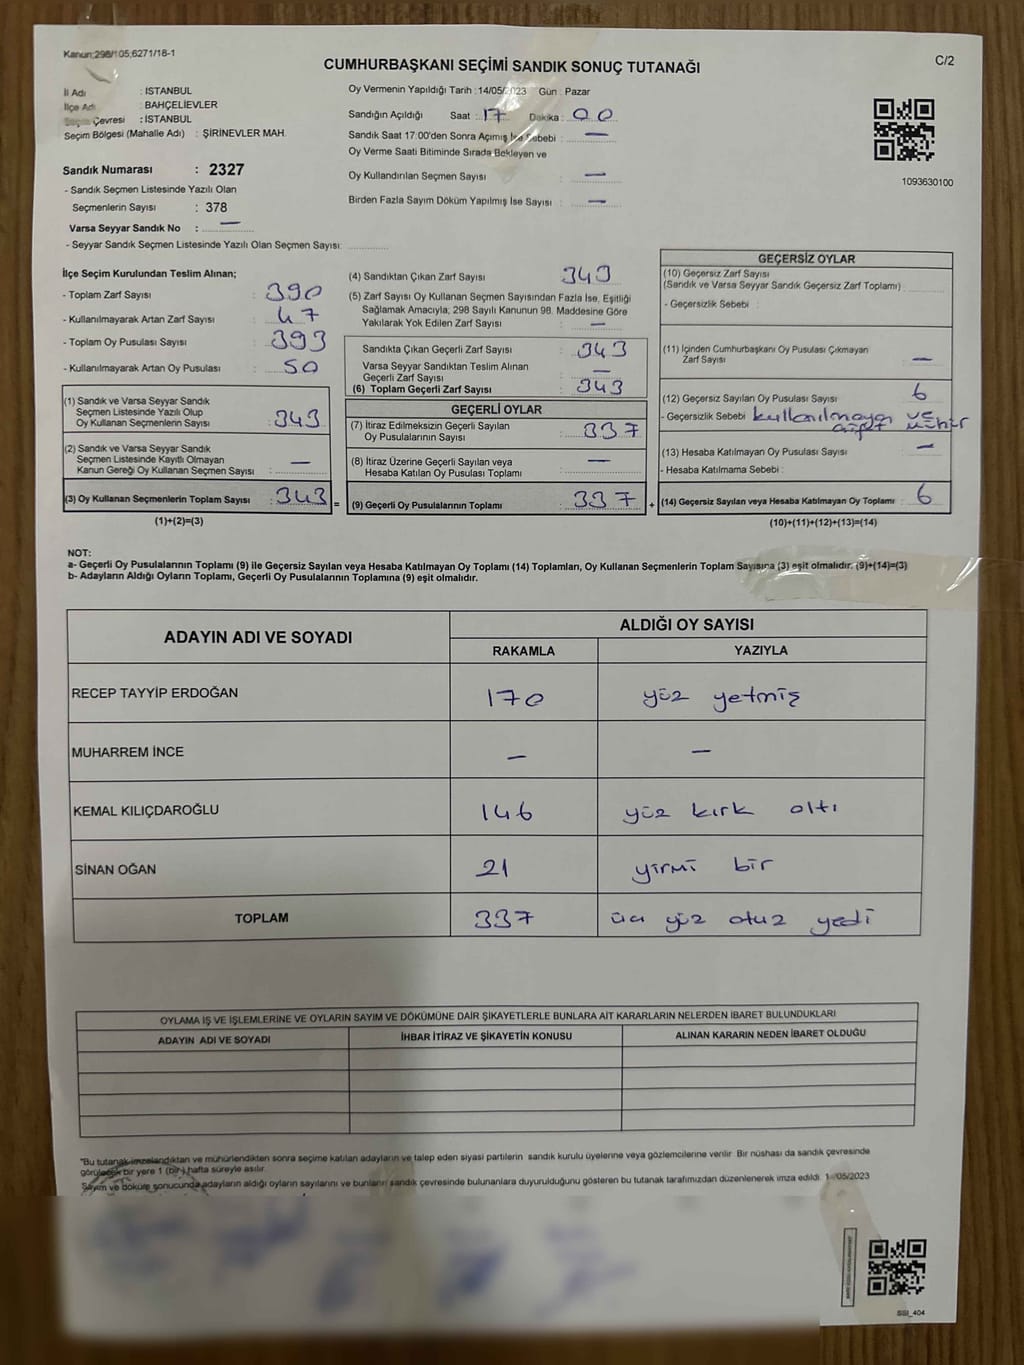 Kanun;298/105;6271/18-1
CUMHURBAŞKANI SEÇİMİ SANDIK SONUÇ TUTANAĞI
C/2
İl Adı : İSTANBUL
İlçe Adı : BAHÇELİEVLER
Seçim Çevresi : İSTANBUL
Seçim Bölgesi (Mahalle Adı) : ŞİRİNEVLER MAH.
Sandık Numarası : 2327
- Sandık Seçmen Listesinde Yazılı Olan
Seçmenlerin Sayısı : 378
Varsa Seyyar Sandık No : —
- Seyyar Sandık Seçmen Listesinde Yazılı Olan Seçmen Sayısı:
Oy Vermenin Yapıldığı Tarih : 14/05/2023 Gün : Pazar
Sandığın Açıldığı Saat : 17 Dakika : 00
Sandık Saat 17:00'den Sonra Açılmış İse Sebebi : —
Oy Verme Saati Bitiminde Sırada Bekleyen ve
Oy Kullandırılan Seçmen Sayısı : —
Birden Fazla Sayım Döküm Yapılmış İse Sayısı : —
1093630100
İlçe Seçim Kurulundan Teslim Alınan;
- Toplam Zarf Sayısı : 390
- Kullanılmayarak Artan Zarf Sayısı : 47
- Toplam Oy Pusulası Sayısı : 393
- Kullanılmayarak Artan Oy Pusulası : 50
(1) Sandık ve Varsa Seyyar Sandık
Seçmen Listesinde Yazılı Olup
Oy Kullanan Seçmenlerin Sayısı : 343
(2) Sandık ve Varsa Seyyar Sandık
Seçmen Listesinde Kayıtlı Olmayan
Kanun Gereği Oy Kullanan Seçmen Sayısı : —
(3) Oy Kullanan Seçmenlerin Toplam Sayısı : 343 =
(1)+(2)=(3)
(4) Sandıktan Çıkan Zarf Sayısı 343
(5) Zarf Sayısı Oy Kullanan Seçmen Sayısından Fazla İse, Eşitliği
Sağlamak Amacıyla; 298 Sayılı Kanunun 98. Maddesine Göre
Yakılarak Yok Edilen Zarf Sayısı : —
Sandıkta Çıkan Geçerli Zarf Sayısı : 343
Varsa Seyyar Sandıktan Teslim Alınan
Geçerli Zarf Sayısı : —
(6) Toplam Geçerli Zarf Sayısı : 343
GEÇERLİ OYLAR
(7) İtiraz Edilmeksizin Geçerli Sayılan
Oy Pusulalarının Sayısı : 337
(8) İtiraz Üzerine Geçerli Sayılan veya
Hesaba Katılan Oy Pusulası Toplamı : —
(9) Geçerli Oy Pusulalarının Toplamı : 337 +
GEÇERSİZ OYLAR
(10) Geçersiz Zarf Sayısı
(Sandık ve Varsa Seyyar Sandık Geçersiz Zarf Toplamı) :
- Geçersizlik Sebebi :
(11) İçinden Cumhurbaşkanı Oy Pusulası Çıkmayan
Zarf Sayısı : —
(12) Geçersiz Sayılan Oy Pusulası Sayısı : 6
- Geçersizlik Sebebi : kullanılmayan ve mühür
(13) Hesaba Katılmayan Oy Pusulası Sayısı : —
- Hesaba Katılmama Sebebi :
(14) Geçersiz Sayılan veya Hesaba Katılmayan Oy Toplamı : 6
(10)+(11)+(12)+(13)=(14)
NOT:
a- Geçerli Oy Pusulalarının Toplamı (9) ile Geçersiz Sayılan veya Hesaba Katılmayan Oy Toplamı (14) Toplamları, Oy Kullanan Seçmenlerin Toplam Sayısına (3) eşit olmalıdır. (9)+(14)=(3)
b- Adayların Aldığı Oyların Toplamı, Geçerli Oy Pusulalarının Toplamına (9) eşit olmalıdır.
ADAYIN ADI VE SOYADI
ALDIĞI OY SAYISI
RAKAMLA YAZIYLA
RECEP TAYYİP ERDOĞAN 170 yüz yetmiş
MUHARREM İNCE — —
KEMAL KILIÇDAROĞLU 146 yüz kırk altı
SİNAN OĞAN 21 yirmi bir
TOPLAM 337 üç yüz otuz yedi
OYLAMA İŞ VE İŞLEMLERİNE VE OYLARIN SAYIM VE DÖKÜMÜNE DAİR ŞİKAYETLERLE BUNLARA AİT KARARLARIN NELERDEN İBARET BULUNDUKLARI
ADAYIN ADI VE SOYADI İHBAR İTİRAZ VE ŞİKAYETİN KONUSU ALINAN KARARIN NEDEN İBARET OLDUĞU
*Bu tutanak imzalandıktan ve mühürlendikten sonra seçime katılan adayların ve talep eden siyasi partilerin sandık kurulu üyelerine veya gözlemcilerine verilir. Bir nüshası da sandık çevresinde
görülecek bir yere 1 (bir) hafta süreyle asılır.
Sayım ve döküm sonucunda adayların aldığı oyların sayılarını ve bunların sandık çevresinde bulunanlara duyurulduğunu gösteren bu tutanak tarafımızdan düzenlenerek imza edildi. /05/2023
SSI_404